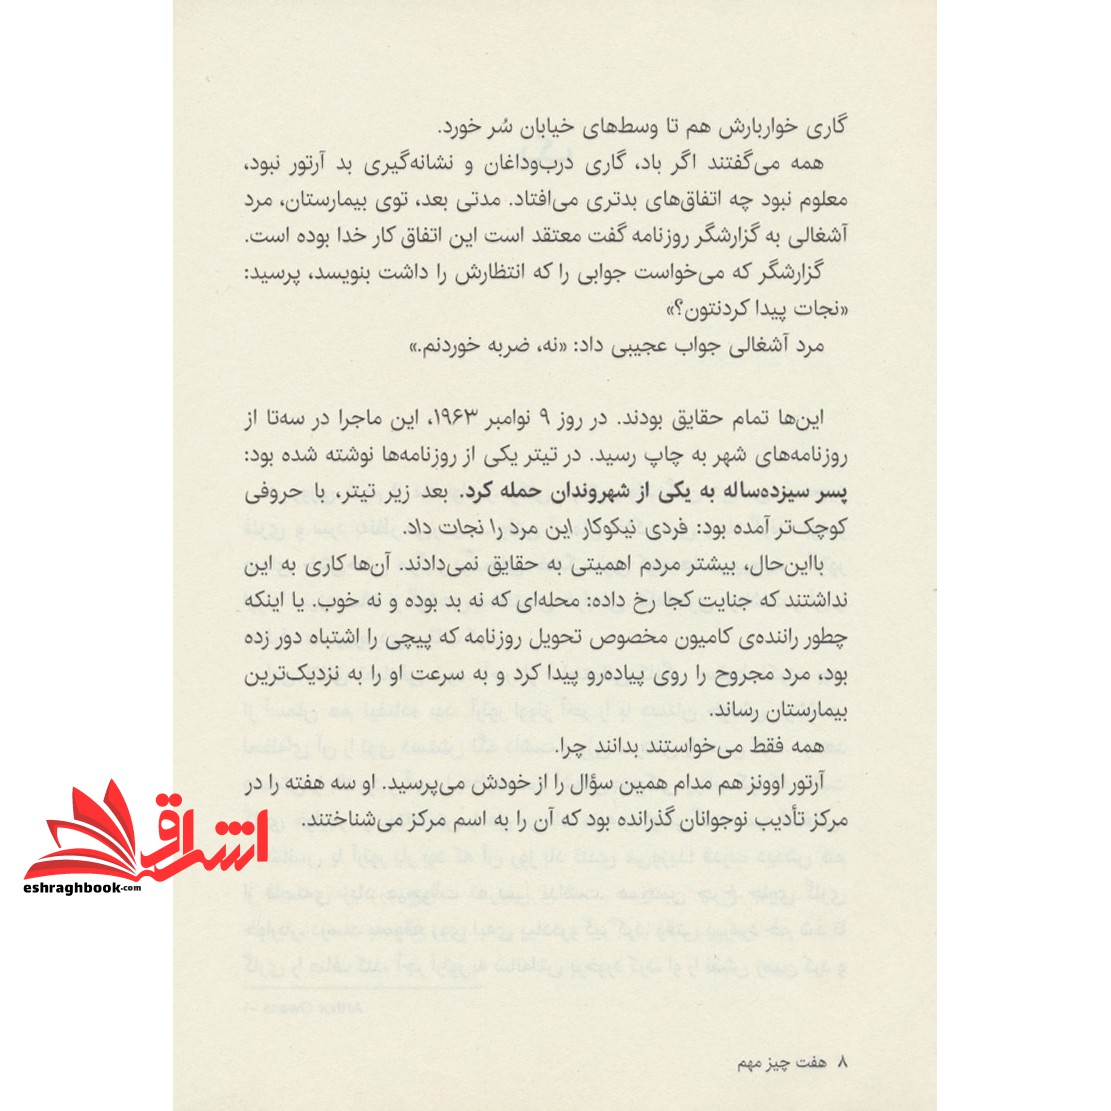 گاری خواربارش هم تا وسط‌های خیابان سُر خورد.
همه می‌گفتند اگر باد، گاری درب‌وداغان و نشانه‌گیری بد آرتور نبود،
معلوم نبود چه اتفاق‌های بدتری می‌افتاد. مدتی بعد، توی بیمارستان، مرد
آشغالی به گزارشگر روزنامه گفت معتقد است این اتفاق کار خدا بوده است.
گزارشگر که می‌خواست جوابی را که انتظارش را داشت بنویسد، پرسید:
«نجات پیدا کردنتون؟»
مرد آشغالی جواب عجیبی داد: «نه، ضربه خوردنم.»
این‌ها تمام حقایق بودند. در روز ۹ نوامبر ۱۹۶۳، این ماجرا در سه‌تا از
روزنامه‌های شهر به چاپ رسید. در تیتر یکی از روزنامه‌ها نوشته شده بود:
پسر سیزده‌ساله به یکی از شهروندان حمله کرد. بعد زیر تیتر، با حروفی
کوچک‌تر آمده بود: فردی نیکوکار این مرد را نجات داد.
بااین‌حال، بیشتر مردم اهمیتی به حقایق نمی‌دادند. آن‌ها کاری به این
نداشتند که جنایت کجا رخ داده: محله‌ای که نه بد بوده و نه خوب. یا اینکه
چطور راننده‌ی کامیون مخصوص تحویل روزنامه که پیچی را اشتباه دور زده
بود، مرد مجروح را روی پیاده‌رو پیدا کرد و به سرعت او را به نزدیک‌ترین
بیمارستان رساند.
همه فقط می‌خواستند بدانند چرا.
آرتور اوونز هم مدام همین سؤال را از خودش می‌پرسید. او سه هفته را در
مرکز تأدیب نوجوانان گذرانده بود که آن را به اسم مرکز می‌شناختند.
اشراق
eshraghbook.com
۸ هفت چیز مهم